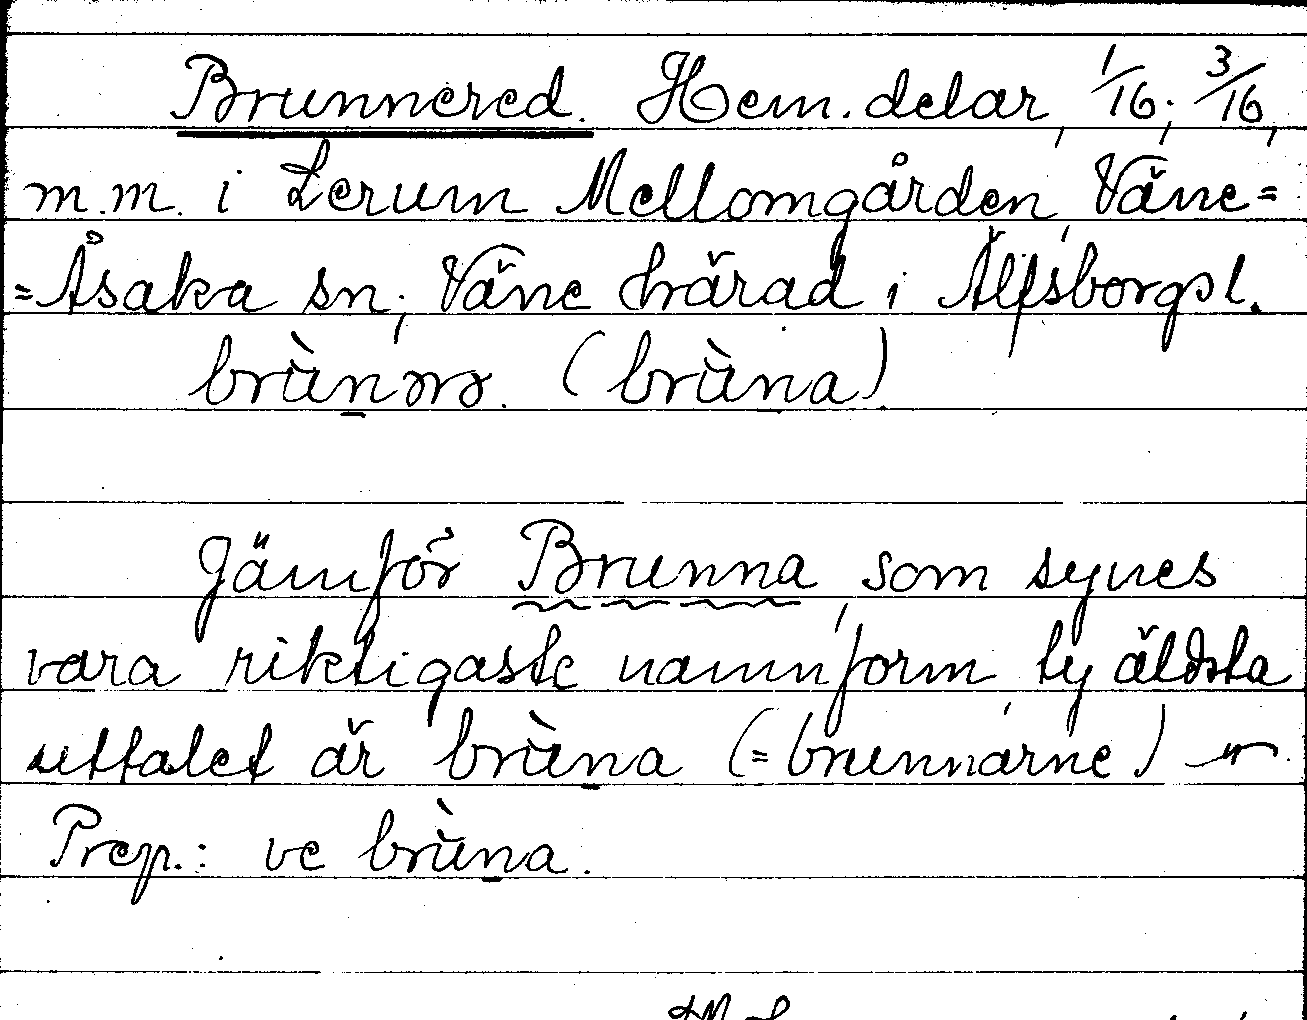 Brunnered. Hem. delar, 1/16; 3/16,
m.m. i Lerum Mellomgården, Väne=
=Åsaka sn; Väne härad i Älfsborgs l.
brùnərə. (brùna)
Jämför Brunna, som synes
vara riktigaste namnform, ty äldsta
uttalet är brùna (=brunnarne)
Prep.: ve brùna.